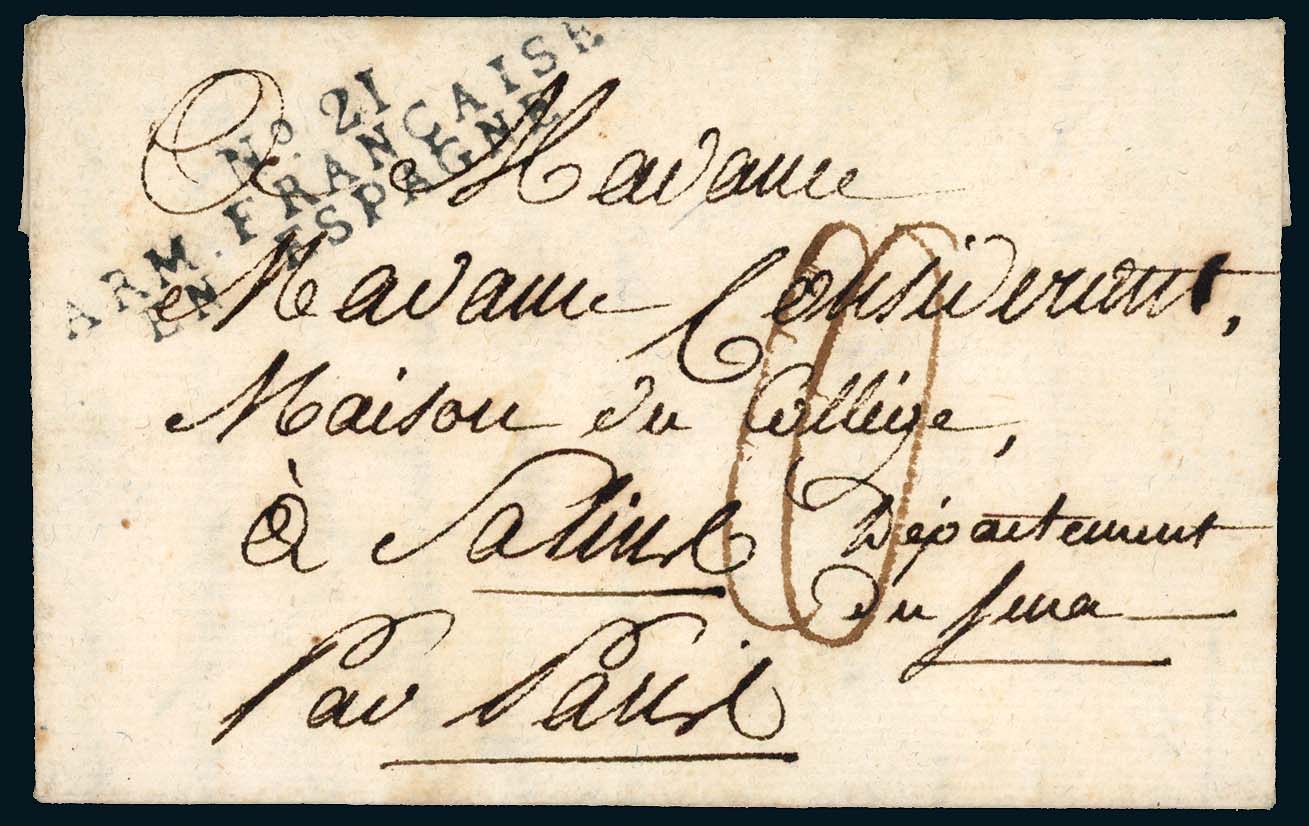 No. 21
ARM. FRANÇAISE
EN ESPAGNE
A Madame
Madame Considerant,
Maison du Collège,
à Salins Département
du Jura
Par Paris